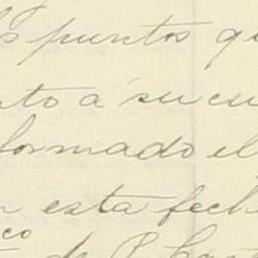 s puntos qu
nto á su cu
formado el
n esta fech
co
de P. Cast